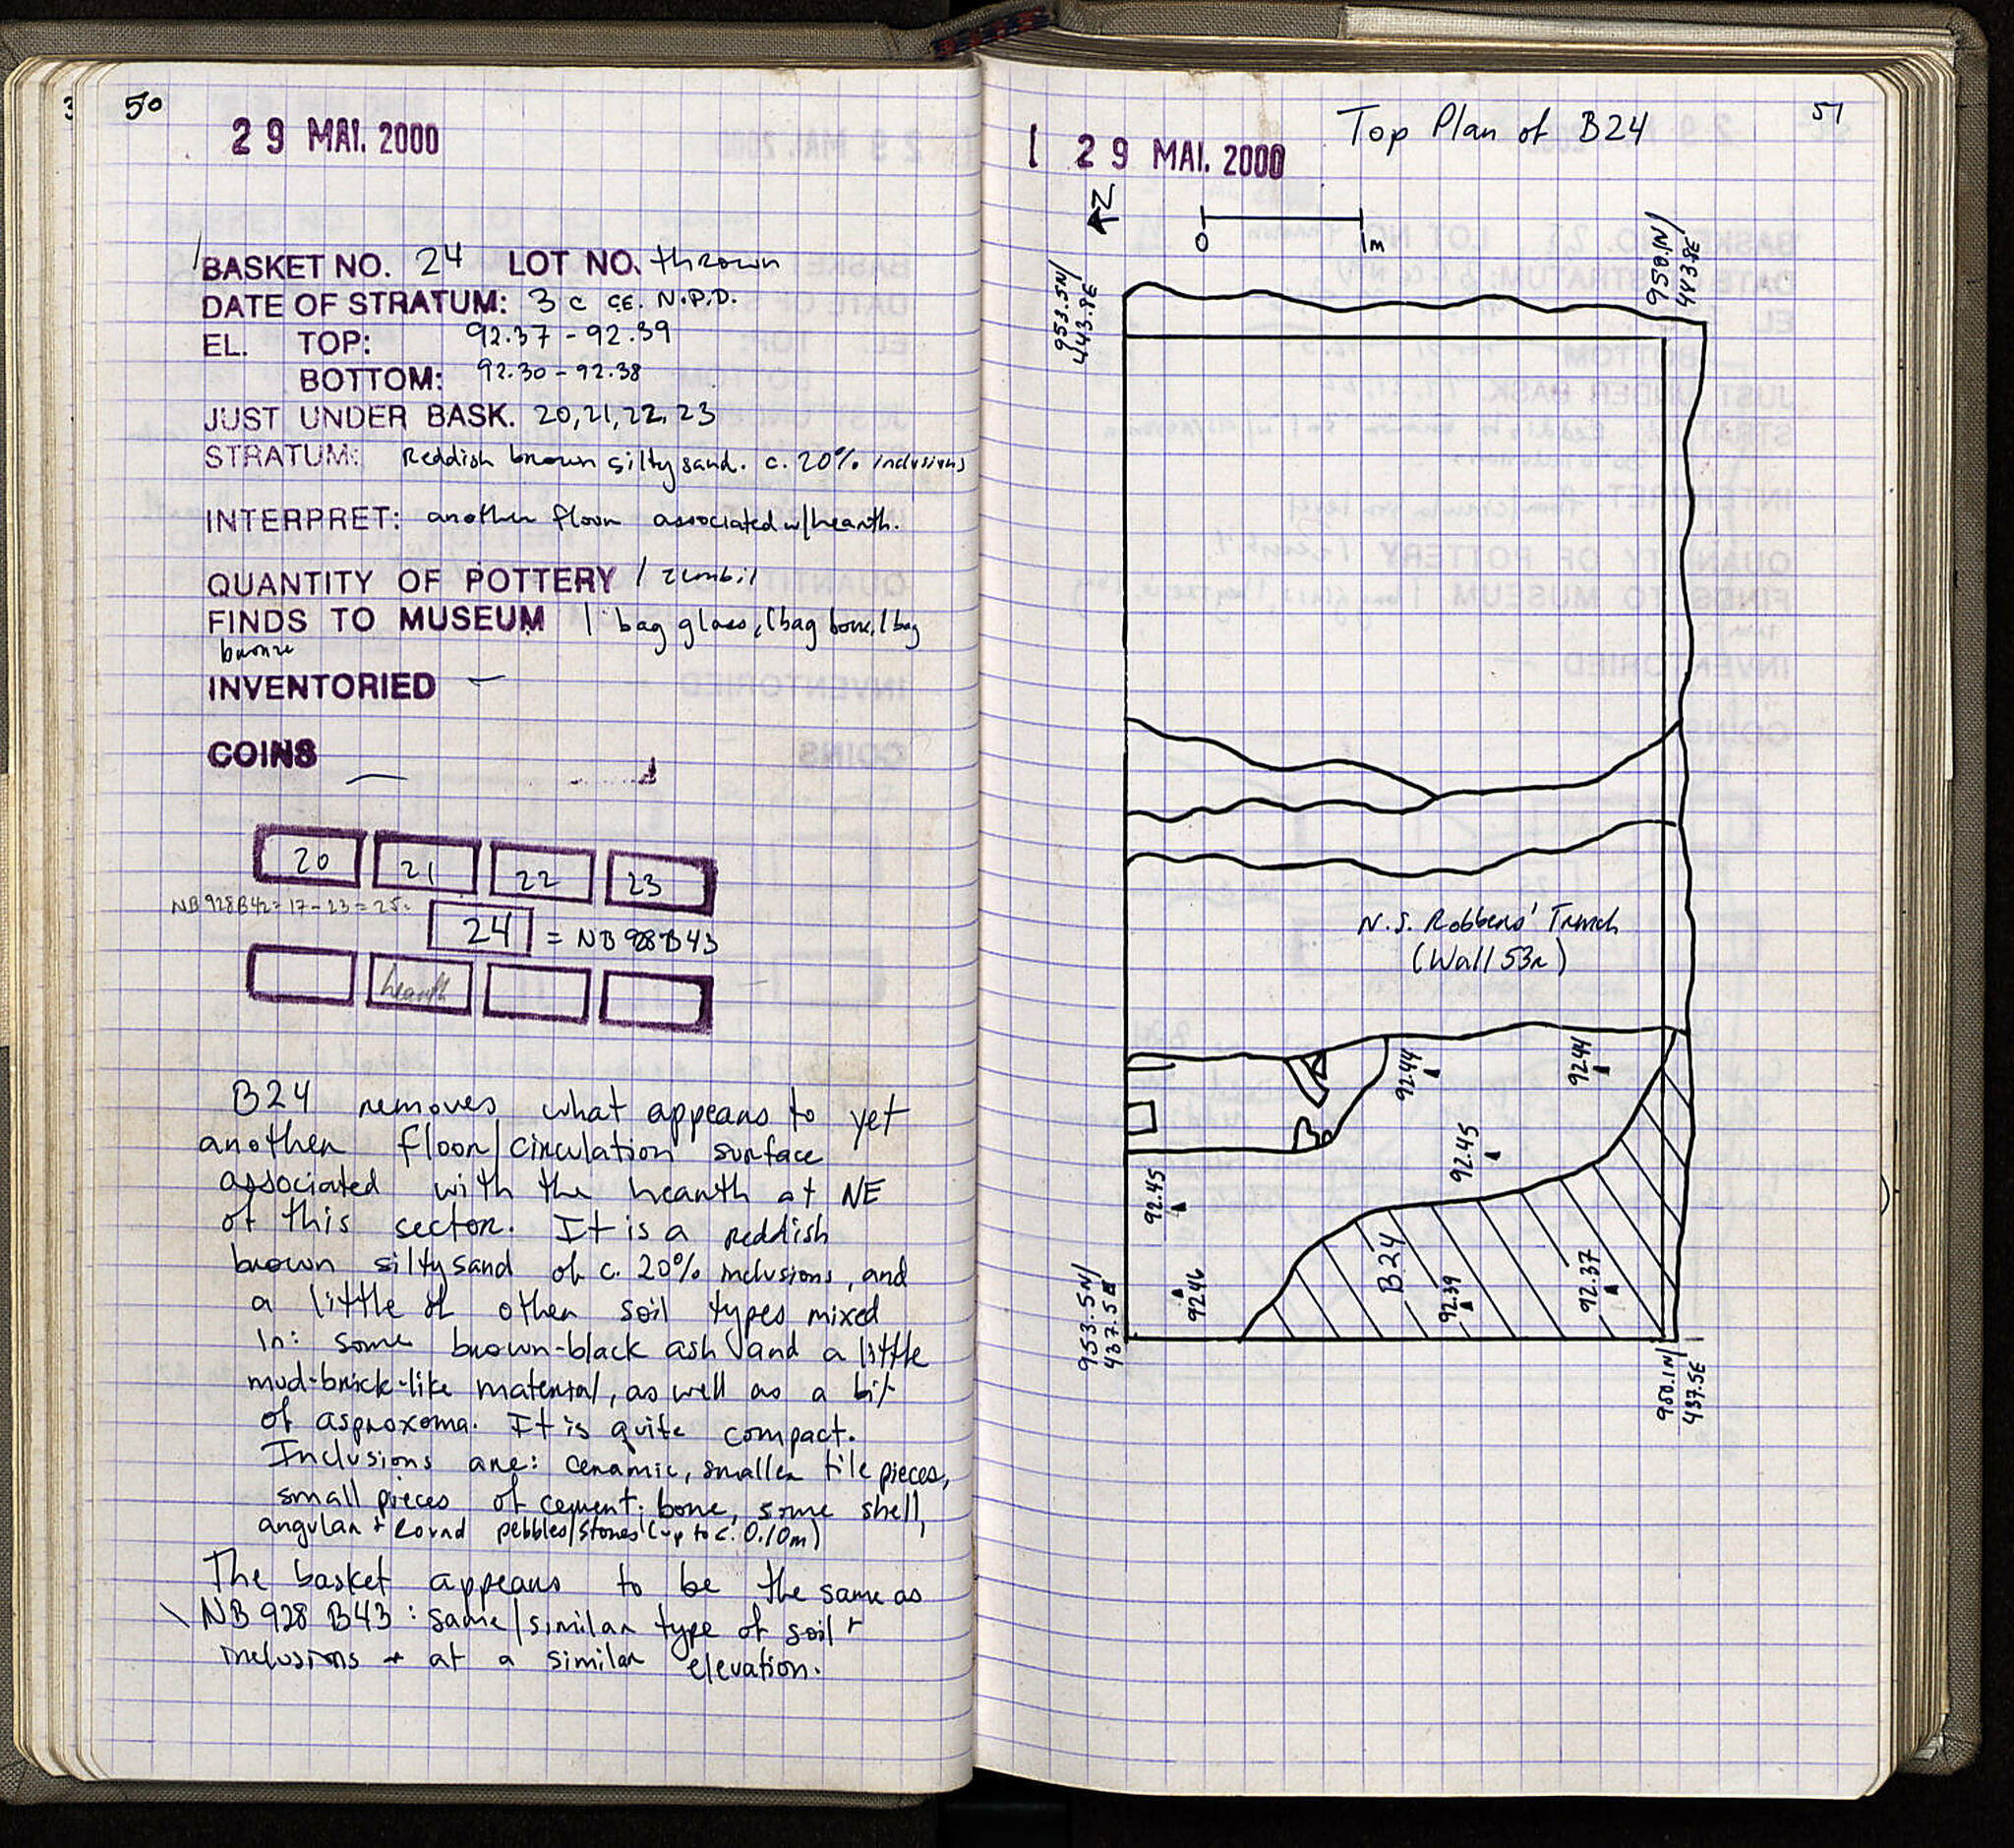 50
29 MAI. 2000
BASKET NO. 24 LOT NO. thrown
DATE OF STRATUM: 3 c CE. N.P.D.
EL. TOP: 92.37 - 92.39
BOTTOM: 92.30 - 92.38
JUST UNDER BASK. 20, 21, 22, 23
STRATUM: Reddish brown silty sand. c. 20% inclusions
INTERPRET: another floor associated w/hearth.
QUANTITY OF POTTERY 1 zembil
FINDS TO MUSEUM 1 bag glass, 1 bag bone, 1 bag
bronze
INVENTORIED —
COINS —
20 21 22 23
NB 928 B42 = 17 - 23 = 25.
24 = NB 928 B43
hearth
B24 removes what appears to yet
another floor/circulation surface
associated with the hearth at NE
of this sector. It is a reddish
brown silty sand of c. 20% inclusions, and
a little of other soil types mixed
in: some brown-black ash and a little
mud-brick-like material, as well as a bit
of asproxoma. It is quite compact.
Inclusions are: ceramic, smaller tile pieces,
small pieces of cement, bone, some shell,
angular + round pebbles/stones (up to c. 0.10m)
The basket appears to be the same as
\ NB 928 B43 : same/similar type of soil +
inclusions + at a similar elevation.
51
Top Plan of B24
29 MAI. 2000
N
0 1m
953.5N/
443.8E
950.1N/
443.8E
N.S. Robbers' Trench
(Wall 53r)
92.44
92.44
92.45
92.45
92.46
B24
92.39
92.37
953.5N/
437.5E
950.1N/
437.5E